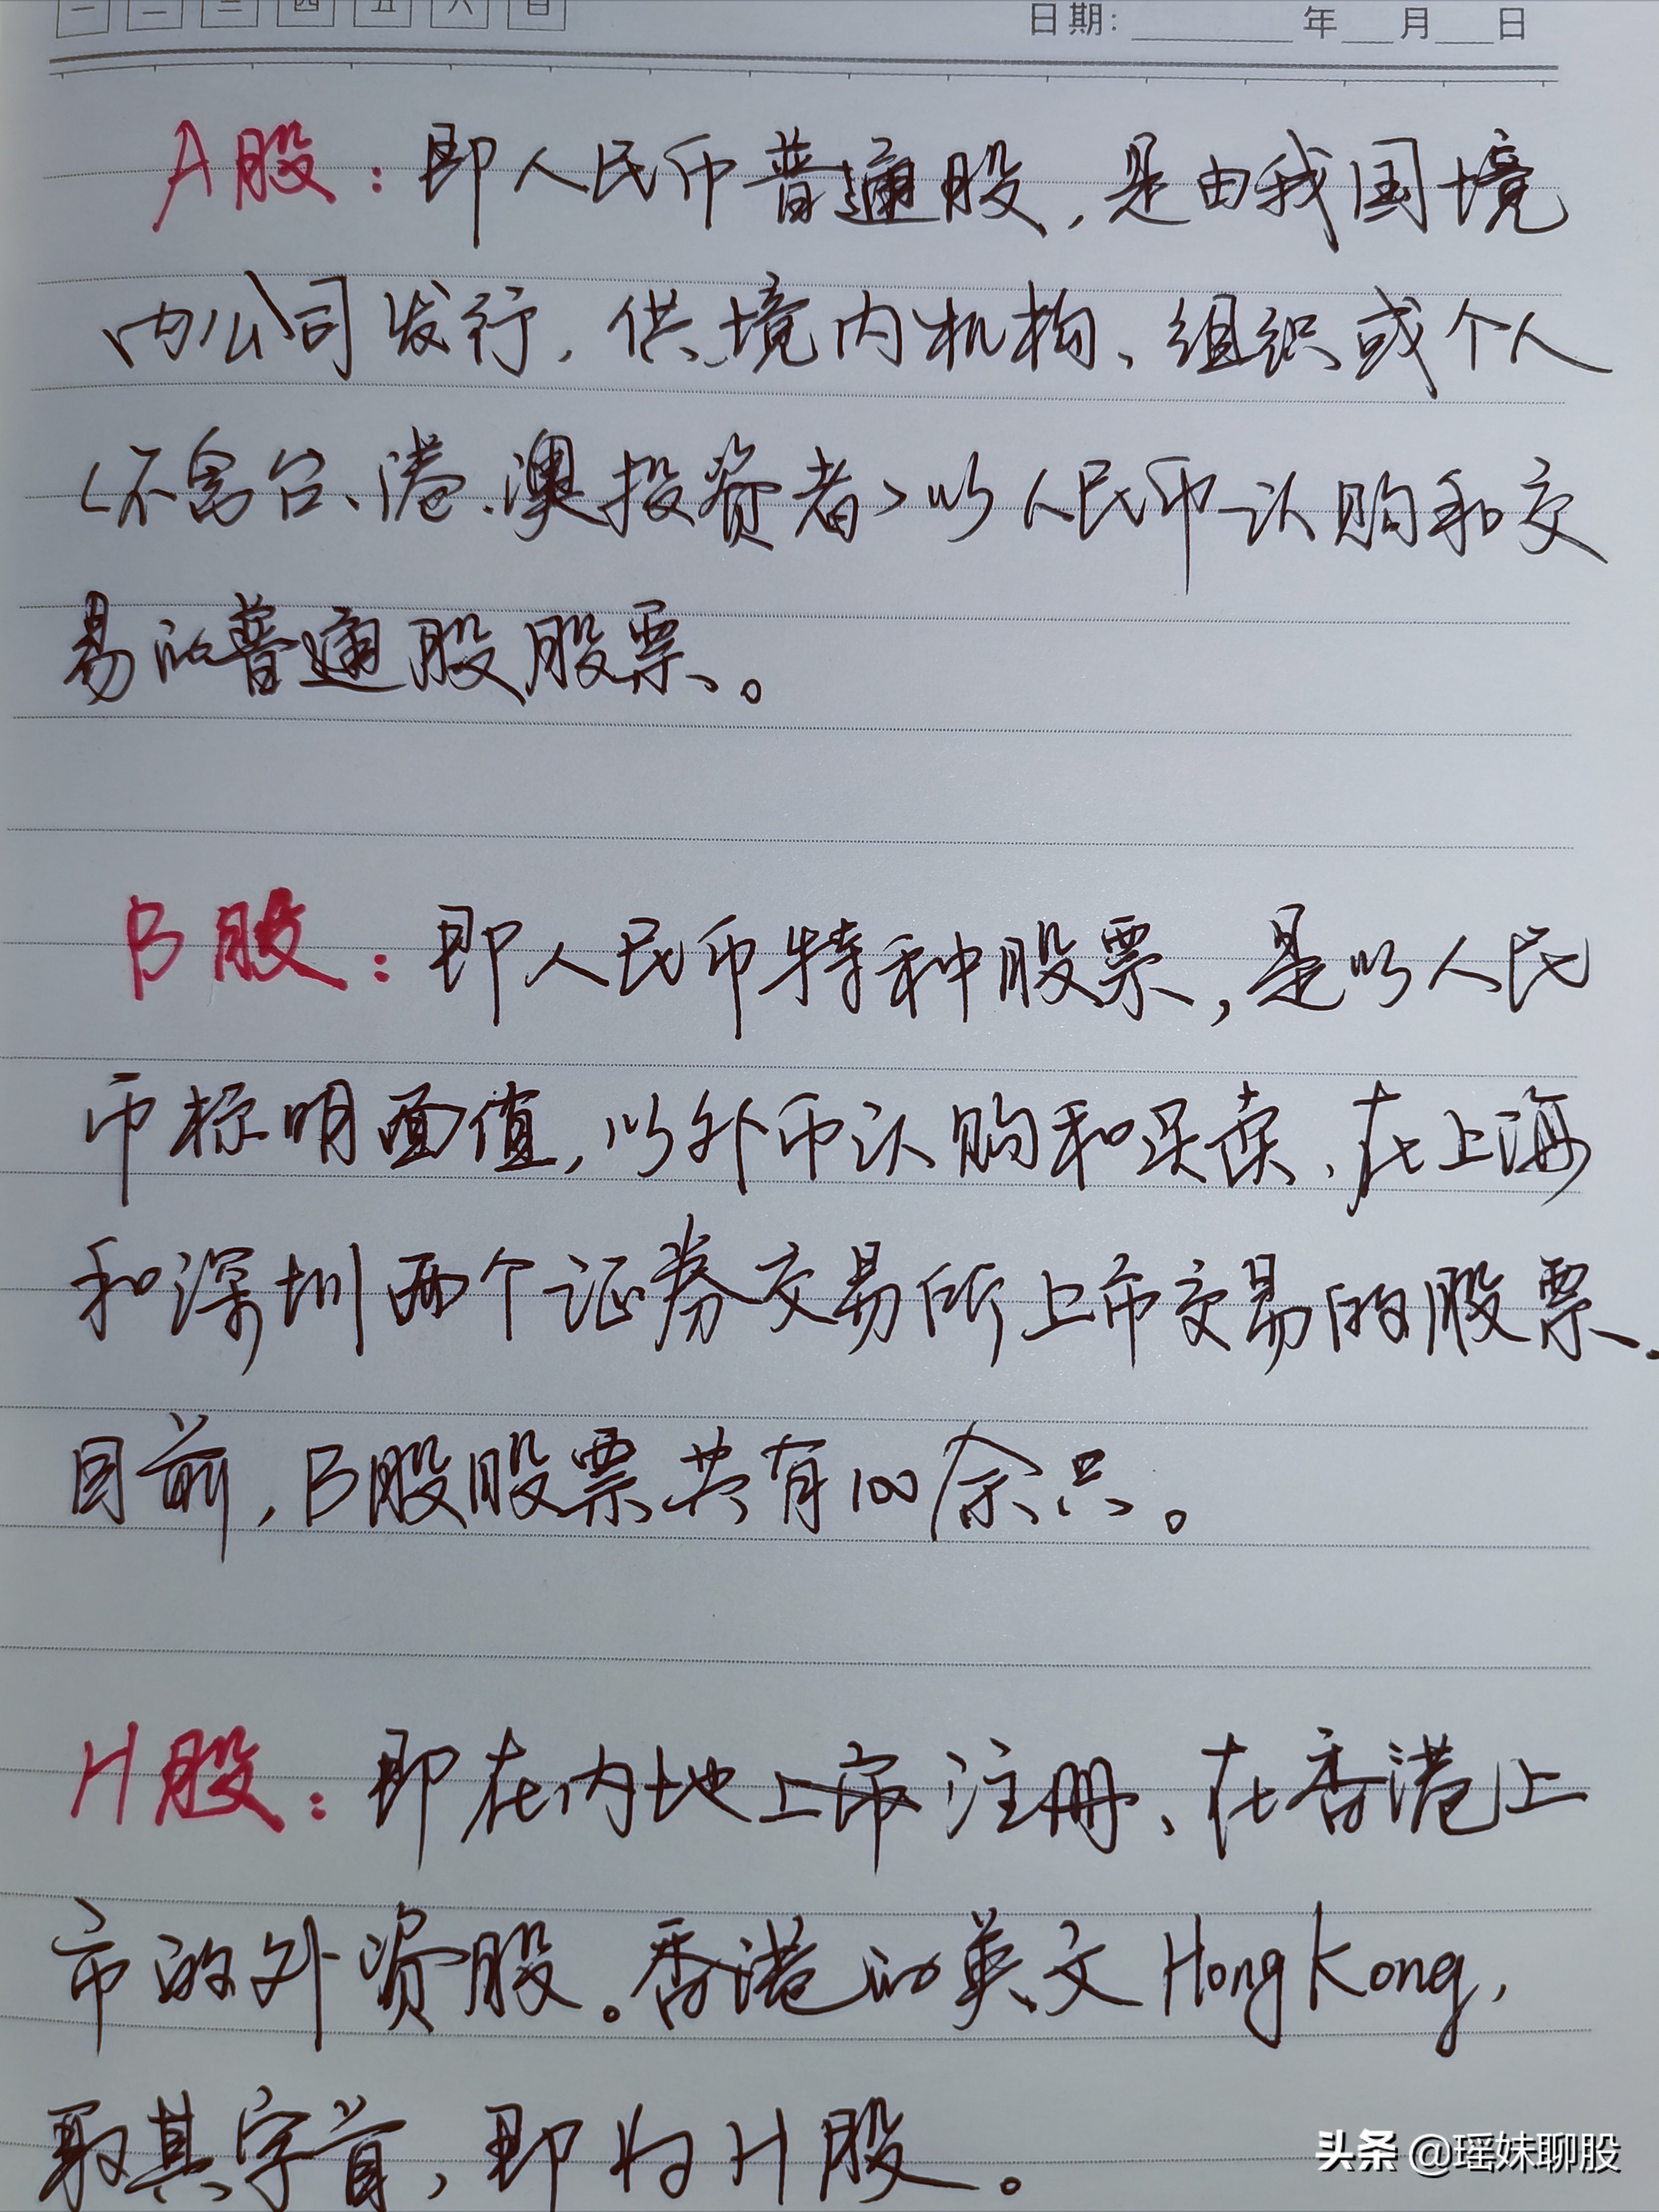 一 二 三 四 五 六 日
日期: 年 月 日
A股：即人民币普通股,是由我国境
内公司发行,供境内机构、组织或个人
(不含台、港、澳投资者)以人民币认购和交
易的普通股股票。
B股：即人民币特种股票,是以人民
币标明面值,以外币认购和买卖、在上海
和深圳两个证券交易所上市交易的股票.
目前,B股股票共有100余只。
H股：即在内地上市注册、在香港上
市的外资股。香港的英文HongKong,
取其字首,即为H股。
头条 @瑶妹聊股